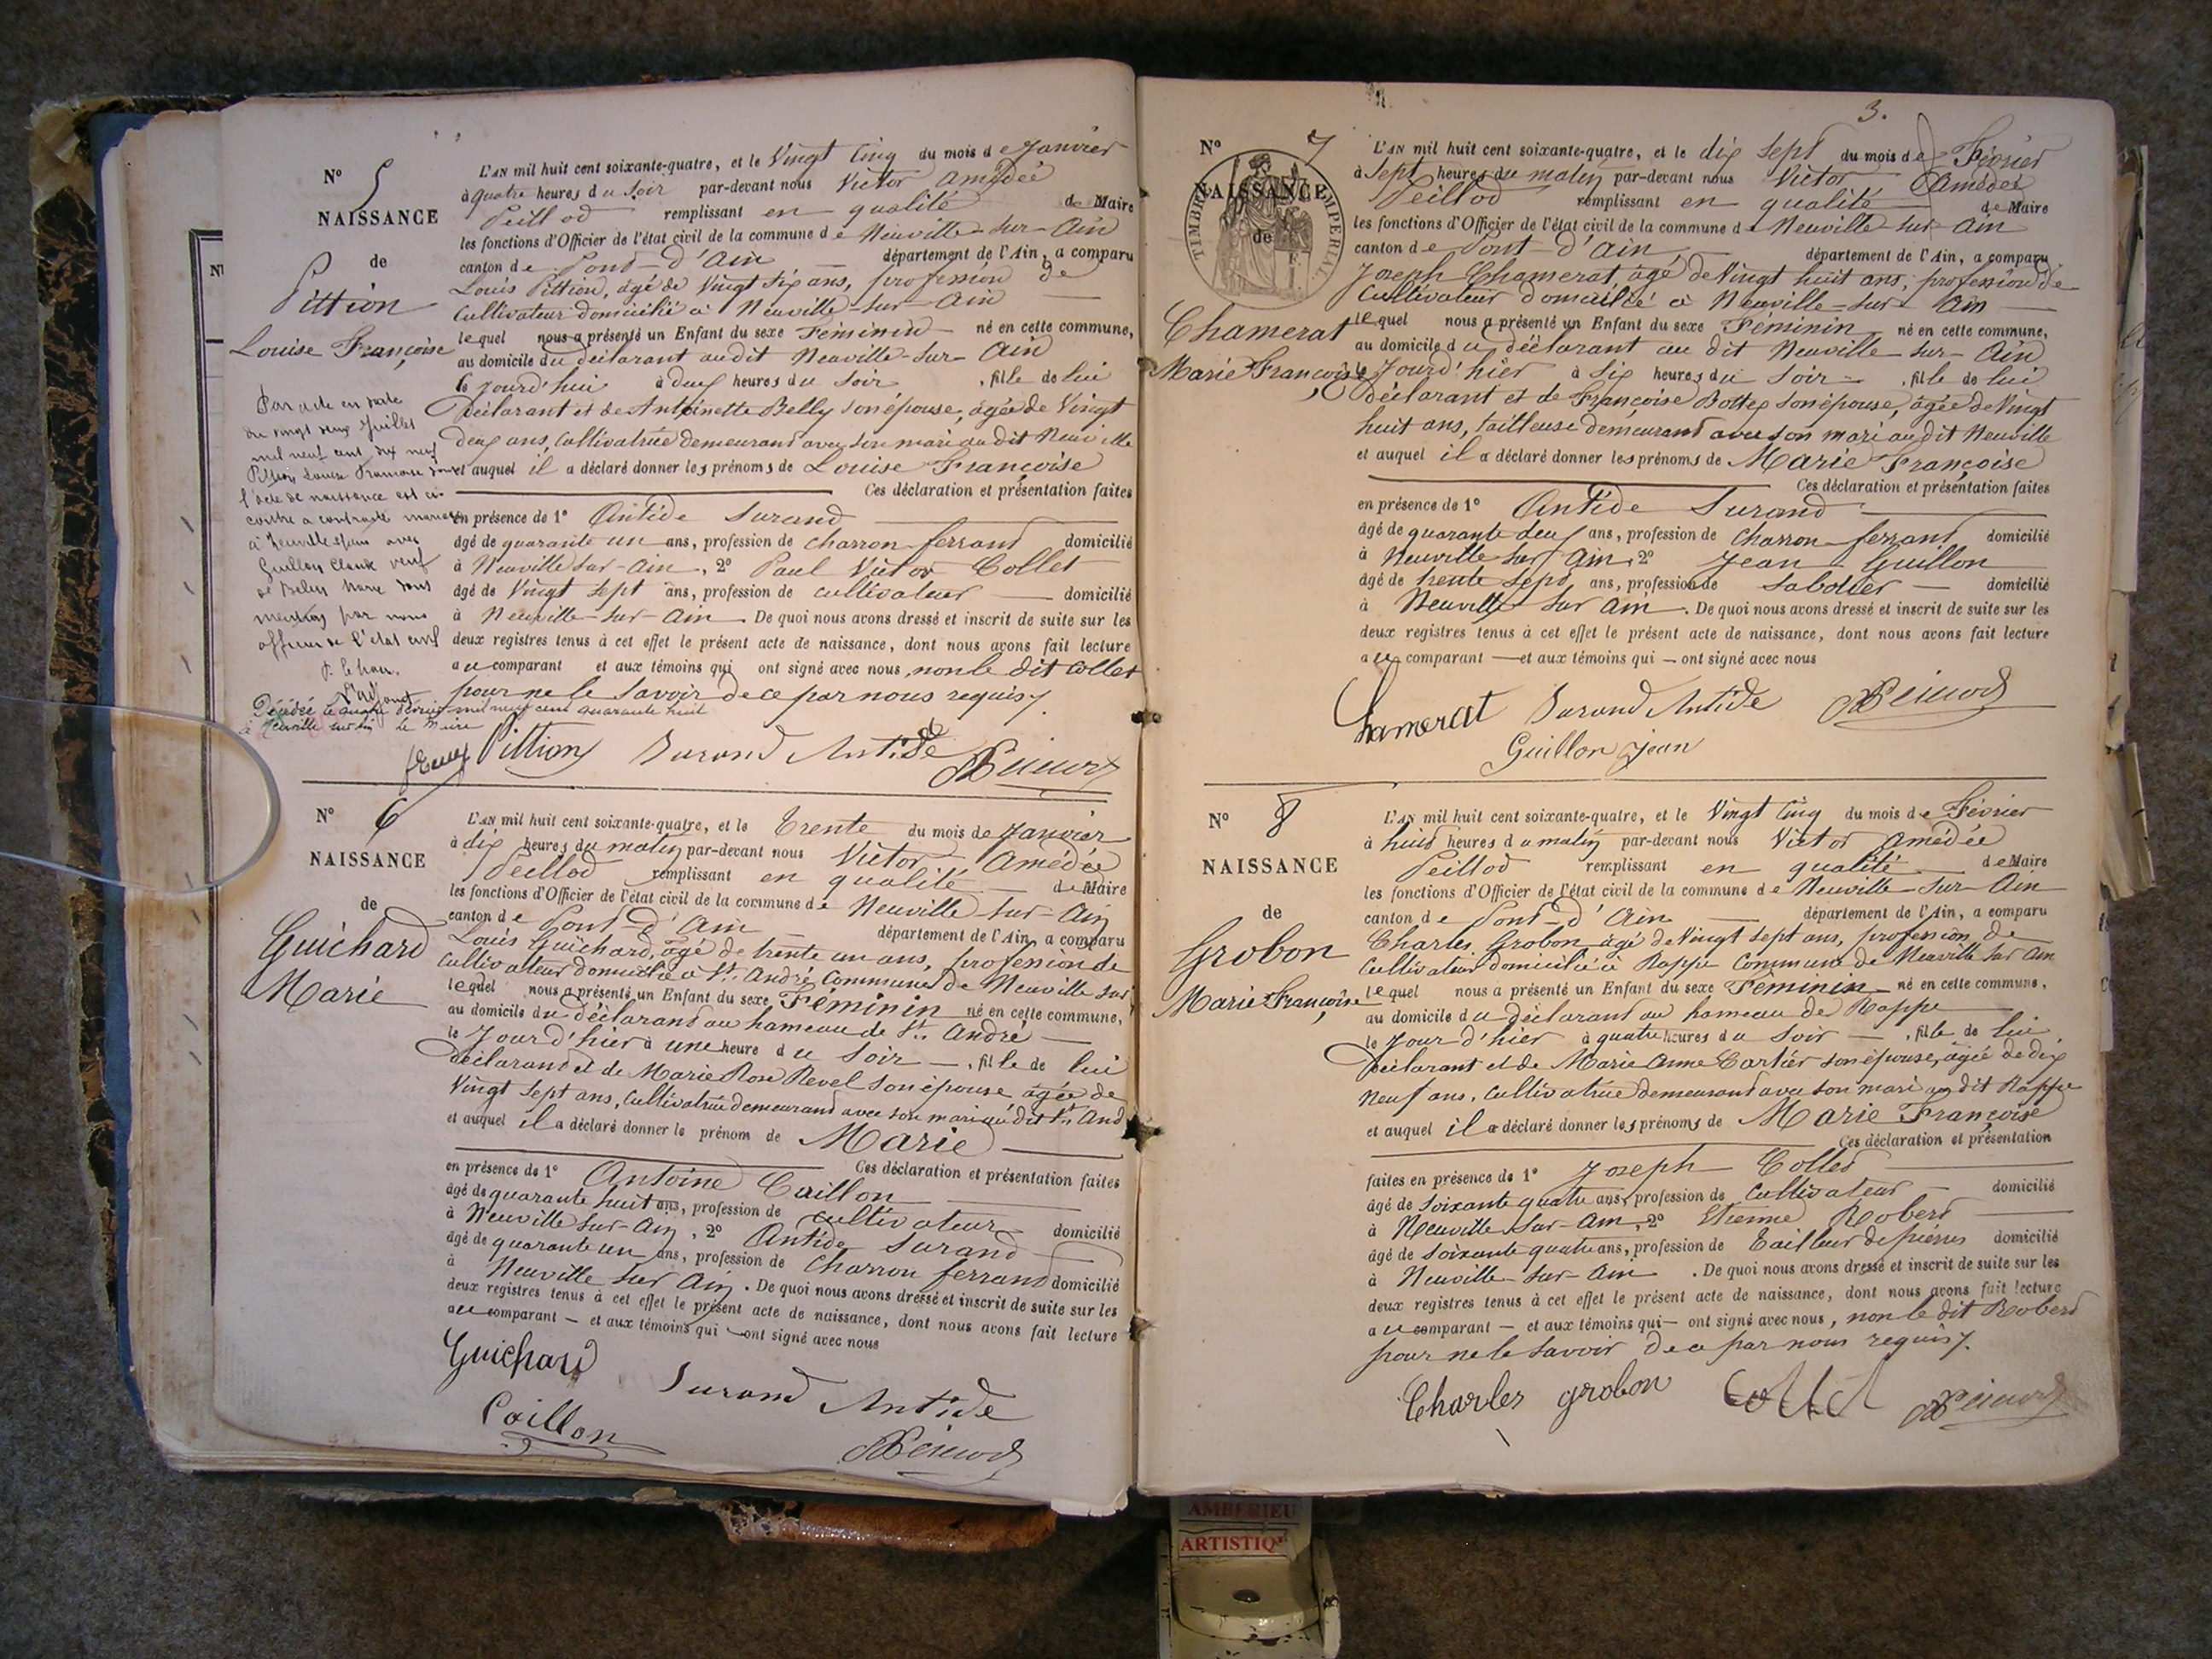 Nº 5
NAISSANCE
de
Pittion
Louise Françoise
L'AN mil huit cent soixante-quatre, et le Vingt Cinq du mois de Janvier
à quatre heures du Soir par-devant nous Victor Amédée
Peillod remplissant en qualité de Maire
les fonctions d'Officier de l'état civil de la commune de Neuville-sur-Ain
canton de Pont-d'Ain département de l'Ain, a comparu
Louis Pittion, âgé de Vingt Six ans, profession de
Cultivateur domicilié à Neuville-sur-Ain
lequel nous a présenté un Enfant du sexe Féminin né en cette commune,
au domicile du déclarant audit Neuville-sur-Ain
le Jourd'hui à deux heures du Soir, fille de lui
Déclarant et de Antoinette Belly son épouse, âgée de Vingt
deux ans, Cultivatrice demeurant avec son mari audit Neuville
et auquel il a déclaré donner les prénoms de Louise Françoise
Ces déclaration et présentation faites
en présence de 1º Antide Durand
âgé de quarante un ans, profession de charron-ferrant domicilié
à Neuville-sur-Ain, 2º Paul Victor Collet
âgé de Vingt Sept ans, profession de cultivateur domicilié
à Neuville-sur-Ain. De quoi nous avons dressé et inscrit de suite sur les
deux registres tenus à cet effet le présent acte de naissance, dont nous avons fait lecture
au comparant et aux témoins qui ont signé avec nous, non le dit Collet
pour ne le Savoir de ce par nous requis
Par acte en date
du vingt deux Juillet
mil neuf cent dix neuf
Pittion Louise Françoise dont
l'acte de naissance est ci-
contre a contracté mariage
à Neuville s/ain avec
Guillon Claude veuf
de Marie
par nous
officier de l'état civil
P. le Maire
L'adjoint
Décédée le quatre Février mil neuf cent quarante huit
à Neuville sur Ain Le Maire
Pittion Durand Antide
Nº 6
NAISSANCE
de
Guichard
Marie
L'AN mil huit cent soixante-quatre, et le Trente du mois de Janvier
à dix heures du matin par-devant nous Victor Amédée
Peillod remplissant en qualité de Maire
les fonctions d'Officier de l'état civil de la commune de Neuville sur-Ain
canton de Pont-d'Ain département de l'Ain, a comparu
Louis Guichard, âgé de trente un ans, profession de
Cultivateur domicilié à St. André Commune de Neuville sur
lequel nous a présenté un Enfant du sexe Féminin né en cette commune,
au domicile du déclarant au hameau de St. André
le Jour d'hier à une heure du Soir, fille de lui
déclarant et de Marie Rose Revel son épouse âgée de
Vingt sept ans, Cultivatrice demeurant avec son mari au dit St. And
et auquel il a déclaré donner le prénom de Marie
Ces déclaration et présentation faites
en présence de 1º Antoine Caillon
âgé de quarante huit ans, profession de cultivateur domicilié
à Neuville sur-Ain, 2º Antide Durand
âgé de quarante un ans, profession de Charron ferrant domicilié
à Neuville sur Ain. De quoi nous avons dressé et inscrit de suite sur les
deux registres tenus à cet effet le présent acte de naissance, dont nous avons fait lecture
au comparant et aux témoins qui ont signé avec nous
Guichard
Durand Antide
Caillon
3.
Nº 7
NAISSANCE
de
TIMBRE IMPÉRIAL
Chamerat
Marie Françoise
L'AN mil huit cent soixante-quatre, et le dix Sept du mois de Février
à Sept heures du matin par-devant nous Victor Amédée
Peillod remplissant en qualité de Maire
les fonctions d'Officier de l'état civil de la commune de Neuville-sur-Ain
canton de Pont-d'Ain département de l'Ain, a comparu
Joseph Chamerat, âgé de Vingt huit ans, profession de
Cultivateur domicilié à Neuville-sur-Ain
lequel nous a présenté un Enfant du sexe Féminin né en cette commune,
au domicile du déclarant au dit Neuville-sur-Ain
le Jourd'hier à Six heures du Soir, fille de lui
déclarant et de Françoise Bottex son épouse, âgée de Vingt
huit ans, tailleuse demeurant avec son mari au dit Neuville
et auquel il a déclaré donner les prénoms de Marie Françoise
Ces déclaration et présentation faites
en présence de 1º Antide Durand
âgé de quarante deux ans, profession de Charron-ferrant domicilié
à Neuville sur Ain, 2º Jean Guillon
âgé de trente Sept ans, profession de Sabotier domicilié
à Neuville sur Ain. De quoi nous avons dressé et inscrit de suite sur les
deux registres tenus à cet effet le présent acte de naissance, dont nous avons fait lecture
au comparant et aux témoins qui ont signé avec nous
Chamerat Durand Antide
Guillon Jean
Nº 8
NAISSANCE
de
Grobon
Marie Françoise
L'AN mil huit cent soixante-quatre, et le Vingt Cinq du mois de Février
à huit heures du matin par-devant nous Victor Amédée
Peillod remplissant en qualité de Maire
les fonctions d'Officier de l'état civil de la commune de Neuville-sur-Ain
canton de Pont-d'Ain département de l'Ain, a comparu
Charles Grobon âgé de Vingt Sept ans, profession de
Cultivateur domicilié à Rappe Commune de Neuville sur Ain
lequel nous a présenté un Enfant du sexe Féminin né en cette commune,
au domicile du déclarant au hameau de Rappe
le Jour d'hier à quatre heures du Soir, fille de lui
Déclarant et de Marie Anne Cartier son épouse, âgée de dix
neuf ans, Cultivatrice demeurant avec son mari au dit Rappe
et auquel il a déclaré donner les prénoms de Marie Françoise
Ces déclaration et présentation
faites en présence de 1º Joseph Collet
âgé de Soixante quatre ans, profession de Cultivateur domicilié
à Neuville-sur-Ain, 2º Etienne Robert
âgé de Soixante quatre ans, profession de Tailleur de pierres domicilié
à Neuville-sur-Ain. De quoi nous avons dressé et inscrit de suite sur les
deux registres tenus à cet effet le présent acte de naissance, dont nous avons fait lecture
au comparant et aux témoins qui ont signé avec nous, non le dit Robert
pour ne le Savoir de ce par nous requis
Charles grobon Collet
AMBERIEU
ARTISTIQ